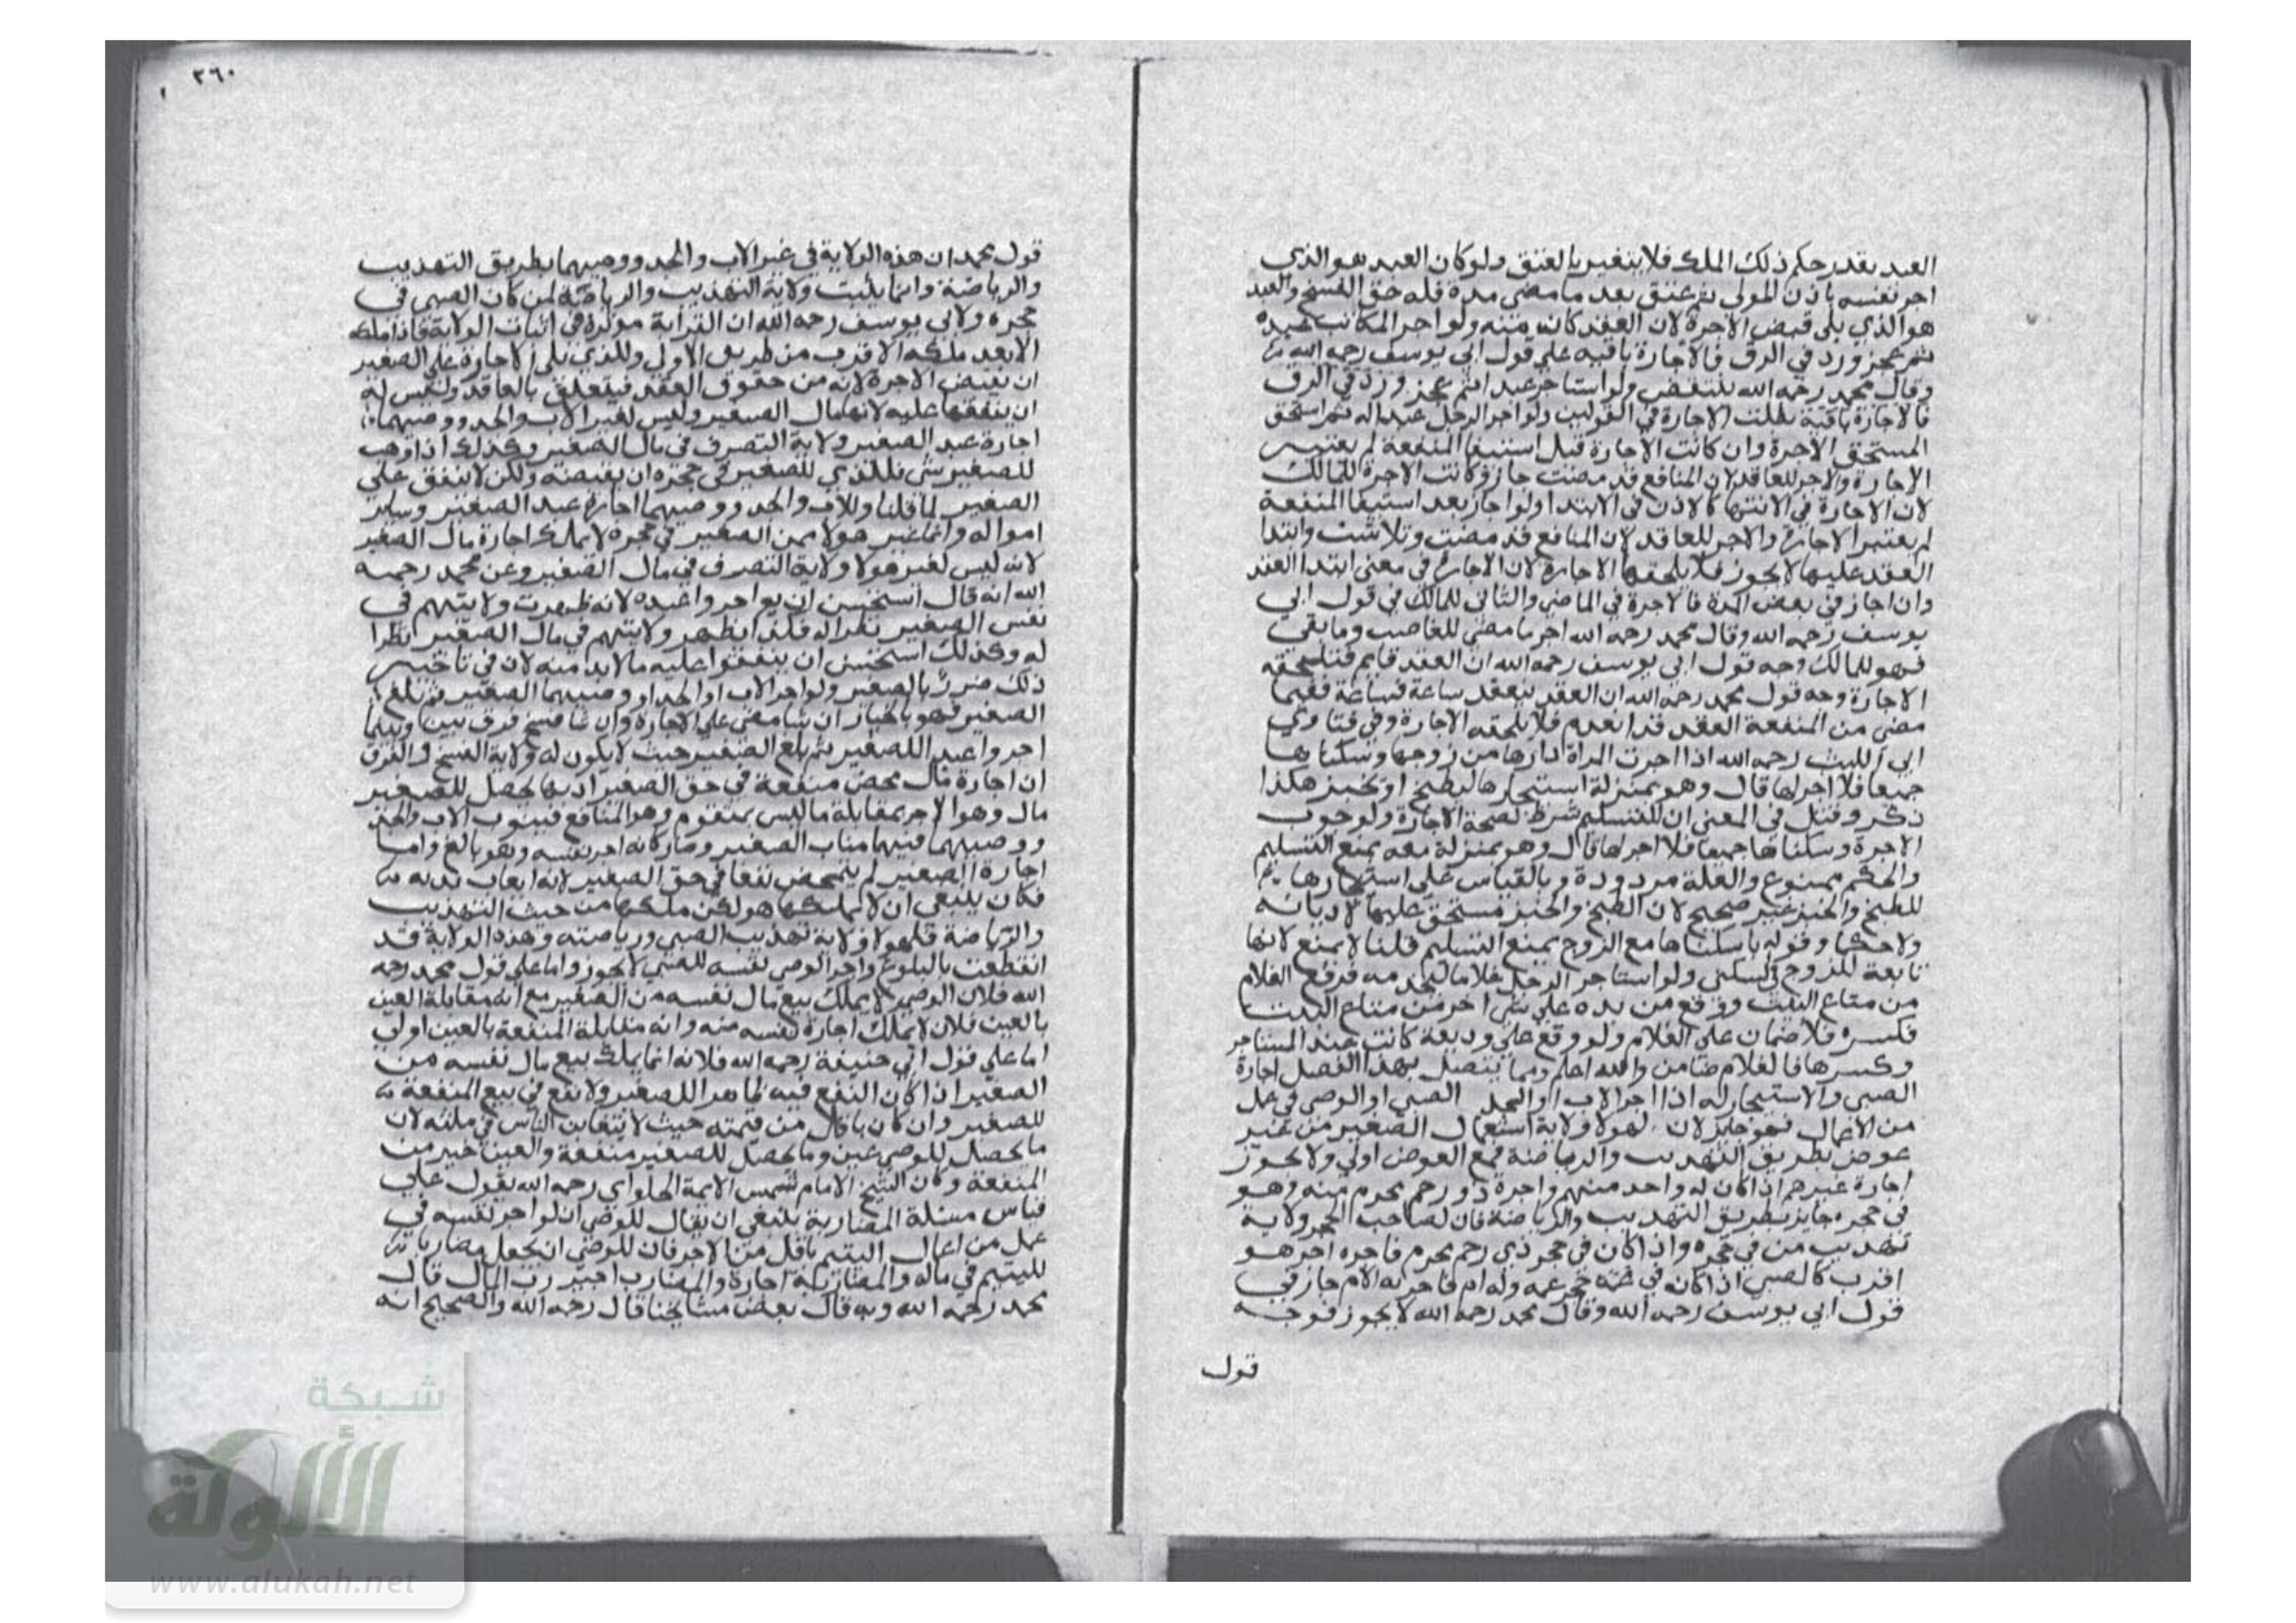 العبد بقدر حكم ذلك الملك فلا يتغير بالعتق ولو كان العبد هو الذي
اجر نفسه باذن المولى ثم عتق بعد ما مضى مدة فله حق الفسخ والعبد
هو الذي يلى قبض الاجرة لان العقد كان منه ولو اجر المكاتب عبده
ثم عجز ورد في الرق فالاجارة باقيه على قول ابي يوسف رحمه الله
وقال محمد رحمه الله تنتقض ولو استاجر عبدا ثم عجز ورد في الرق
فالاجارة باقية بطلت الاجارة في القولين ولو اجر الرجل عبدا له ثم استحق
المستحق الاجرة وان كانت الاجارة قبل استيفا المنفعة لم يعتبر
الاجارة والاجر للعاقد لان المنافع قد مضت جاز وكانت الاجرة للمالك
لان الاجارة في الانتها كالاذن في الابتدا ولو اجاز بعد استيفا المنفعة
لم يعتبر الاجازة والاجر للعاقد لان المنافع قد مضت وتلاشت وابتدا
العقد عليها لا يجوز فلا يلحقها الاجازة لان الاجازة في معنى ابتدا العقد
وان اجاز في بعض المدة فالاجرة في الماضي والثاني للمالك في قول ابي
يوسف رحمه الله وقال محمد رحمه الله اجر ما مضى للغاصب وما بقي
فهو للمالك وجه قول ابي يوسف رحمه الله ان العقد قايم فتلحقه
الاجازة وجه قول محمد رحمه الله ان العقد ينعقد ساعة فساعة ففيما
مضى من المنفعة العقد قد انعدم فلا يلحقه الاجازة وفي فتاوي
ابي الليث رحمه الله اذا اجرت المراة دارها من زوجها وسكناها
جميعا فلا اجر لها قال وهو بمنزلة استيجارها ليطبخ او يخبز هكذا
ذكر وقيل في المعنى ان التسليم شرط لصحة الاجارة ولوجوب
الاجرة وسكناها جميعا فلا اجر لها قال وهو بمنزلة معه يمنع التسليم
والحكم ممنوع والعلة مردودة وبالقياس على استيجارها
للطبخ والخبز غير صحيح لان الطبخ والخبز مستحق عليها لا ديانه
ولا حكما وقوله بان سكناها مع الزوج يمنع التسليم قلنا لا يمنع لانها
تابعة للزوج في السكنى ولو استاجر الرجل غلاما ليخدمه فرفع الغلام
من متاع البيت ووقع من يده على شي اخر من متاع البيت
فكسره فلا ضمان على الغلام ولو وقع على وديعة كانت عند المستاجر
وكسرها فالغلام ضامن والله اعلم ومما يتصل بهذا الفصل اجارة
الصبي والاستيجار له اذا اجر الاب او الجد الصبي او الوصي في عمل
من الاعمال فهو جايز لان لهولا ولاية استعمال الصغير من غير
عوض بطريق التهذيب والرياضة فمع العوض اولى ولا يجوز
اجارة غيرهم اذا كان له واحد منهم واجرة ذو رحم محرم منه وهو
في حجره جايز بطريق التهذيب والرياضة فان لصاحب الحجر ولاية
تهذيب من في حجره واذا كان في حجر ذي رحم محرم فاجره اخر هو
اقرب كالصبي اذا كان في حجر عمه وله ام فاجرته الام جاز في
قول ابي يوسف رحمه الله وقال محمد رحمه الله لا يجوز فوجه
قول
٣٦٠
قول محمد ان هذه الولاية في غير الاب والجد ووصيهما بطريق التهذيب
والرياضة وانما يثبت ولاية التهذيب والرياضة لمن كان الصبي في
حجره ولابي يوسف رحمه الله ان القرابة موثرة في اثبات الولاية فاذا ملكه
الابعد ملكه الاقرب من طريق الاولى وللذي يلى الاجارة على الصغير
ان يقبض الاجرة لانه من حقوق العقد فيتعلق بالعاقد وليس له
ان ينفقها عليه لانها مال الصغير وليس لغير الاب والجد ووصيهما
اجارة عبد الصغير ولاية التصرف في مال الصغير وكذلك اذا وهب
للصغير شي فللذي للصغير في حجره ان يقبضه ولكن لا ينفق على
الصغير لما قلنا وللاب والجد ووصيهما اجارة عبد الصغير وساير
امواله واما غير هولا ممن الصغير في حجره لا يملك اجارة مال الصغير
لانه ليس لغير هولا ولاية التصرف في مال الصغير وعن محمد رحمه
الله انه قال استحسن ان يواجروا عبده لانه ظهرت ولايتهم في
نفس الصغير نظرا له فلذا يظهر ولايتهم في مال الصغير نظرا
له وكذلك استحسن ان ينفقوا عليه ما لابد منه لان في تاخير
ذلك ضررا بالصغير ولو اجر الاب او الجد او وصيهما الصغير ثم بلغ
الصغير فهو بالخيار ان شا مضى على الاجارة وان شا فسخ فرق بين وبينما
اجروا عبد الصغير ثم بلغ الصغير حيث لا يكون له ولاية الفسخ والفرق
ان اجارة مال محض منفعة في حق الصغير اذ بها يحصل للصغير
مال وهو الاجر بمقابلة ما ليس بمتقوم وهو المنافع فينوب الاب والجد
ووصيهما فيها مناب الصغير وصار كانه اجر نفسه وهو بالغ واما
اجارة الصغير لم يتمحض نفعا في حق الصغير لانه اتعاب بدنه
فكان ينبغي ان لا يملكها هو لكن ملكها من حيث التهذيب
والرياضة فلهولا ولاية تهذيب الصبي ورياضته وهذه الولاية قد
انقطعت بالبلوغ واجر الوصي نفسه للصبي لا يجوز واما على قول محمد رحمه
الله فلان الوصي لا يملك بيع مال نفسه من الصغير مع انه مقابلة العين
بالعين فلان لا يملك اجارة نفسه منه وانه مقابلة المنفعة بالعين اولى
اما على قول ابي حنيفة رحمه الله فلانه انما يملك بيع مال نفسه من
الصغير اذا كان النفع فيه ظاهرا للصغير ولا نفع في بيع المنفعة
للصغير وان كان باقل من قيمته حيث لا يتغابن الناس في مثله لان
ما يحصل للوصي عين وما يحصل للصغير منفعة والعين خير من
المنفعة وكان الشيخ الامام شمس الايمة الحلواي رحمه الله يقول على
قياس مسئلة المضاربة ينبغي ان يقال للوصي ان لو اجر نفسه في
عمل من اعمال اليتيم باقل من الاجر فان للوصي ان يجعل مضاربا
لليتيم في ماله والمضاربة اجارة والمضارب اجير رب المال قال
محمد رحمه الله وبه قال بعض مشايخنا قال رحمه الله والصحيح انه
شبكة
الألوكة
www.alukah.net